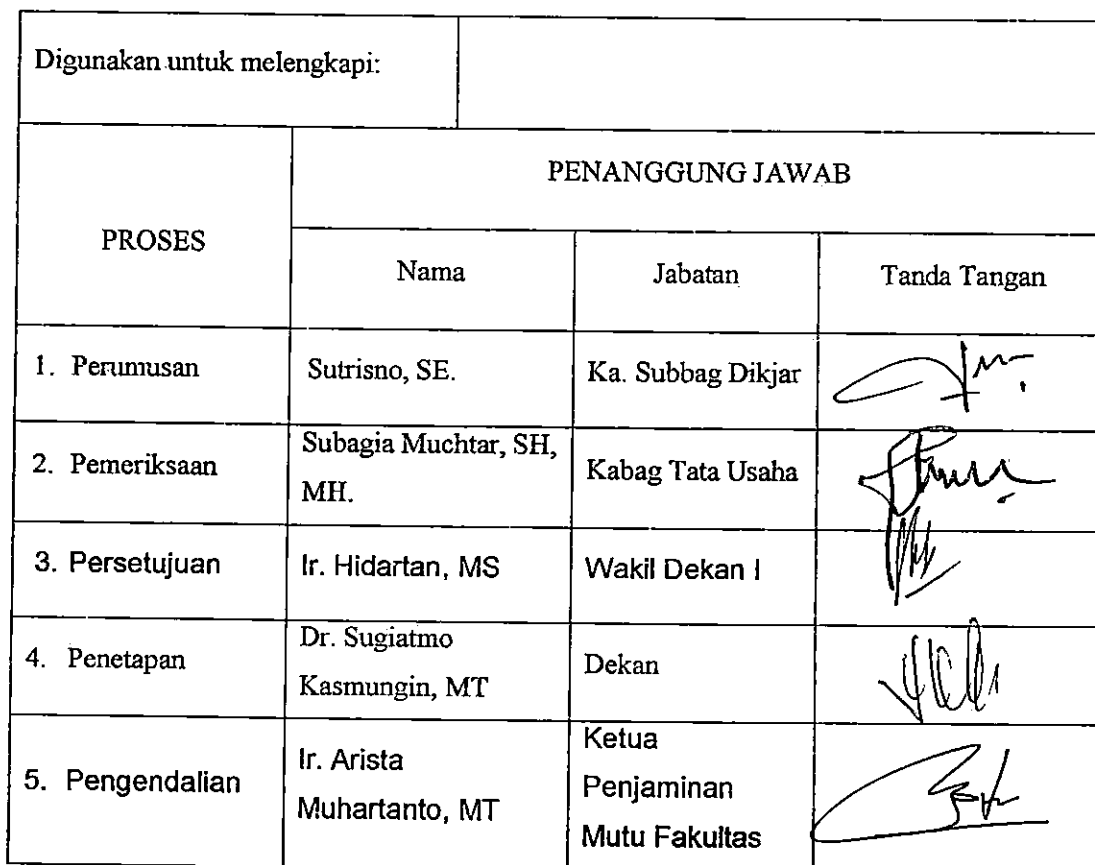 Digunakan untuk melengkapi:
PROSES
PENANGGUNG JAWAB
Nama
Jabatan
Tanda Tangan
1. Perumusan
Sutrisno, SE.
Ka. Subbag Dikjar
2. Pemeriksaan
Subagia Muchtar, SH,
MH.
Kabag Tata Usaha
3. Persetujuan
Ir. Hidartan, MS
Wakil Dekan I
4. Penetapan
Dr. Sugiatmo
Kasmungin, MT
Dekan
5. Pengendalian
Ir. Arista
Muhartanto, MT
Ketua
Penjaminan
Mutu Fakultas